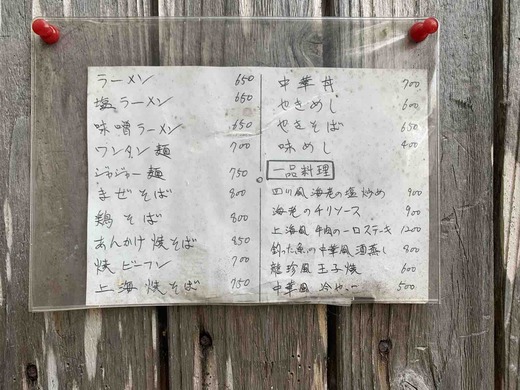 ラーメン 650
塩ラーメン 650
味噌ラーメン 650
ワンタン麺 700
ジャジャー麺 750
まぜそば 800
鶏そば 800
あんかけ焼そば 850
焼ビーフン 700
上海焼そば 750
中華丼 700
やきめし 600
やきそば 650
味めし 400
一品料理
四川風海老の塩炒め 900
海老のチリソース 900
上海風牛肉の一口ステーキ 1200
釣った魚の中華風酒蒸し 800
風玉子焼 600
中華風冷やっこ 500